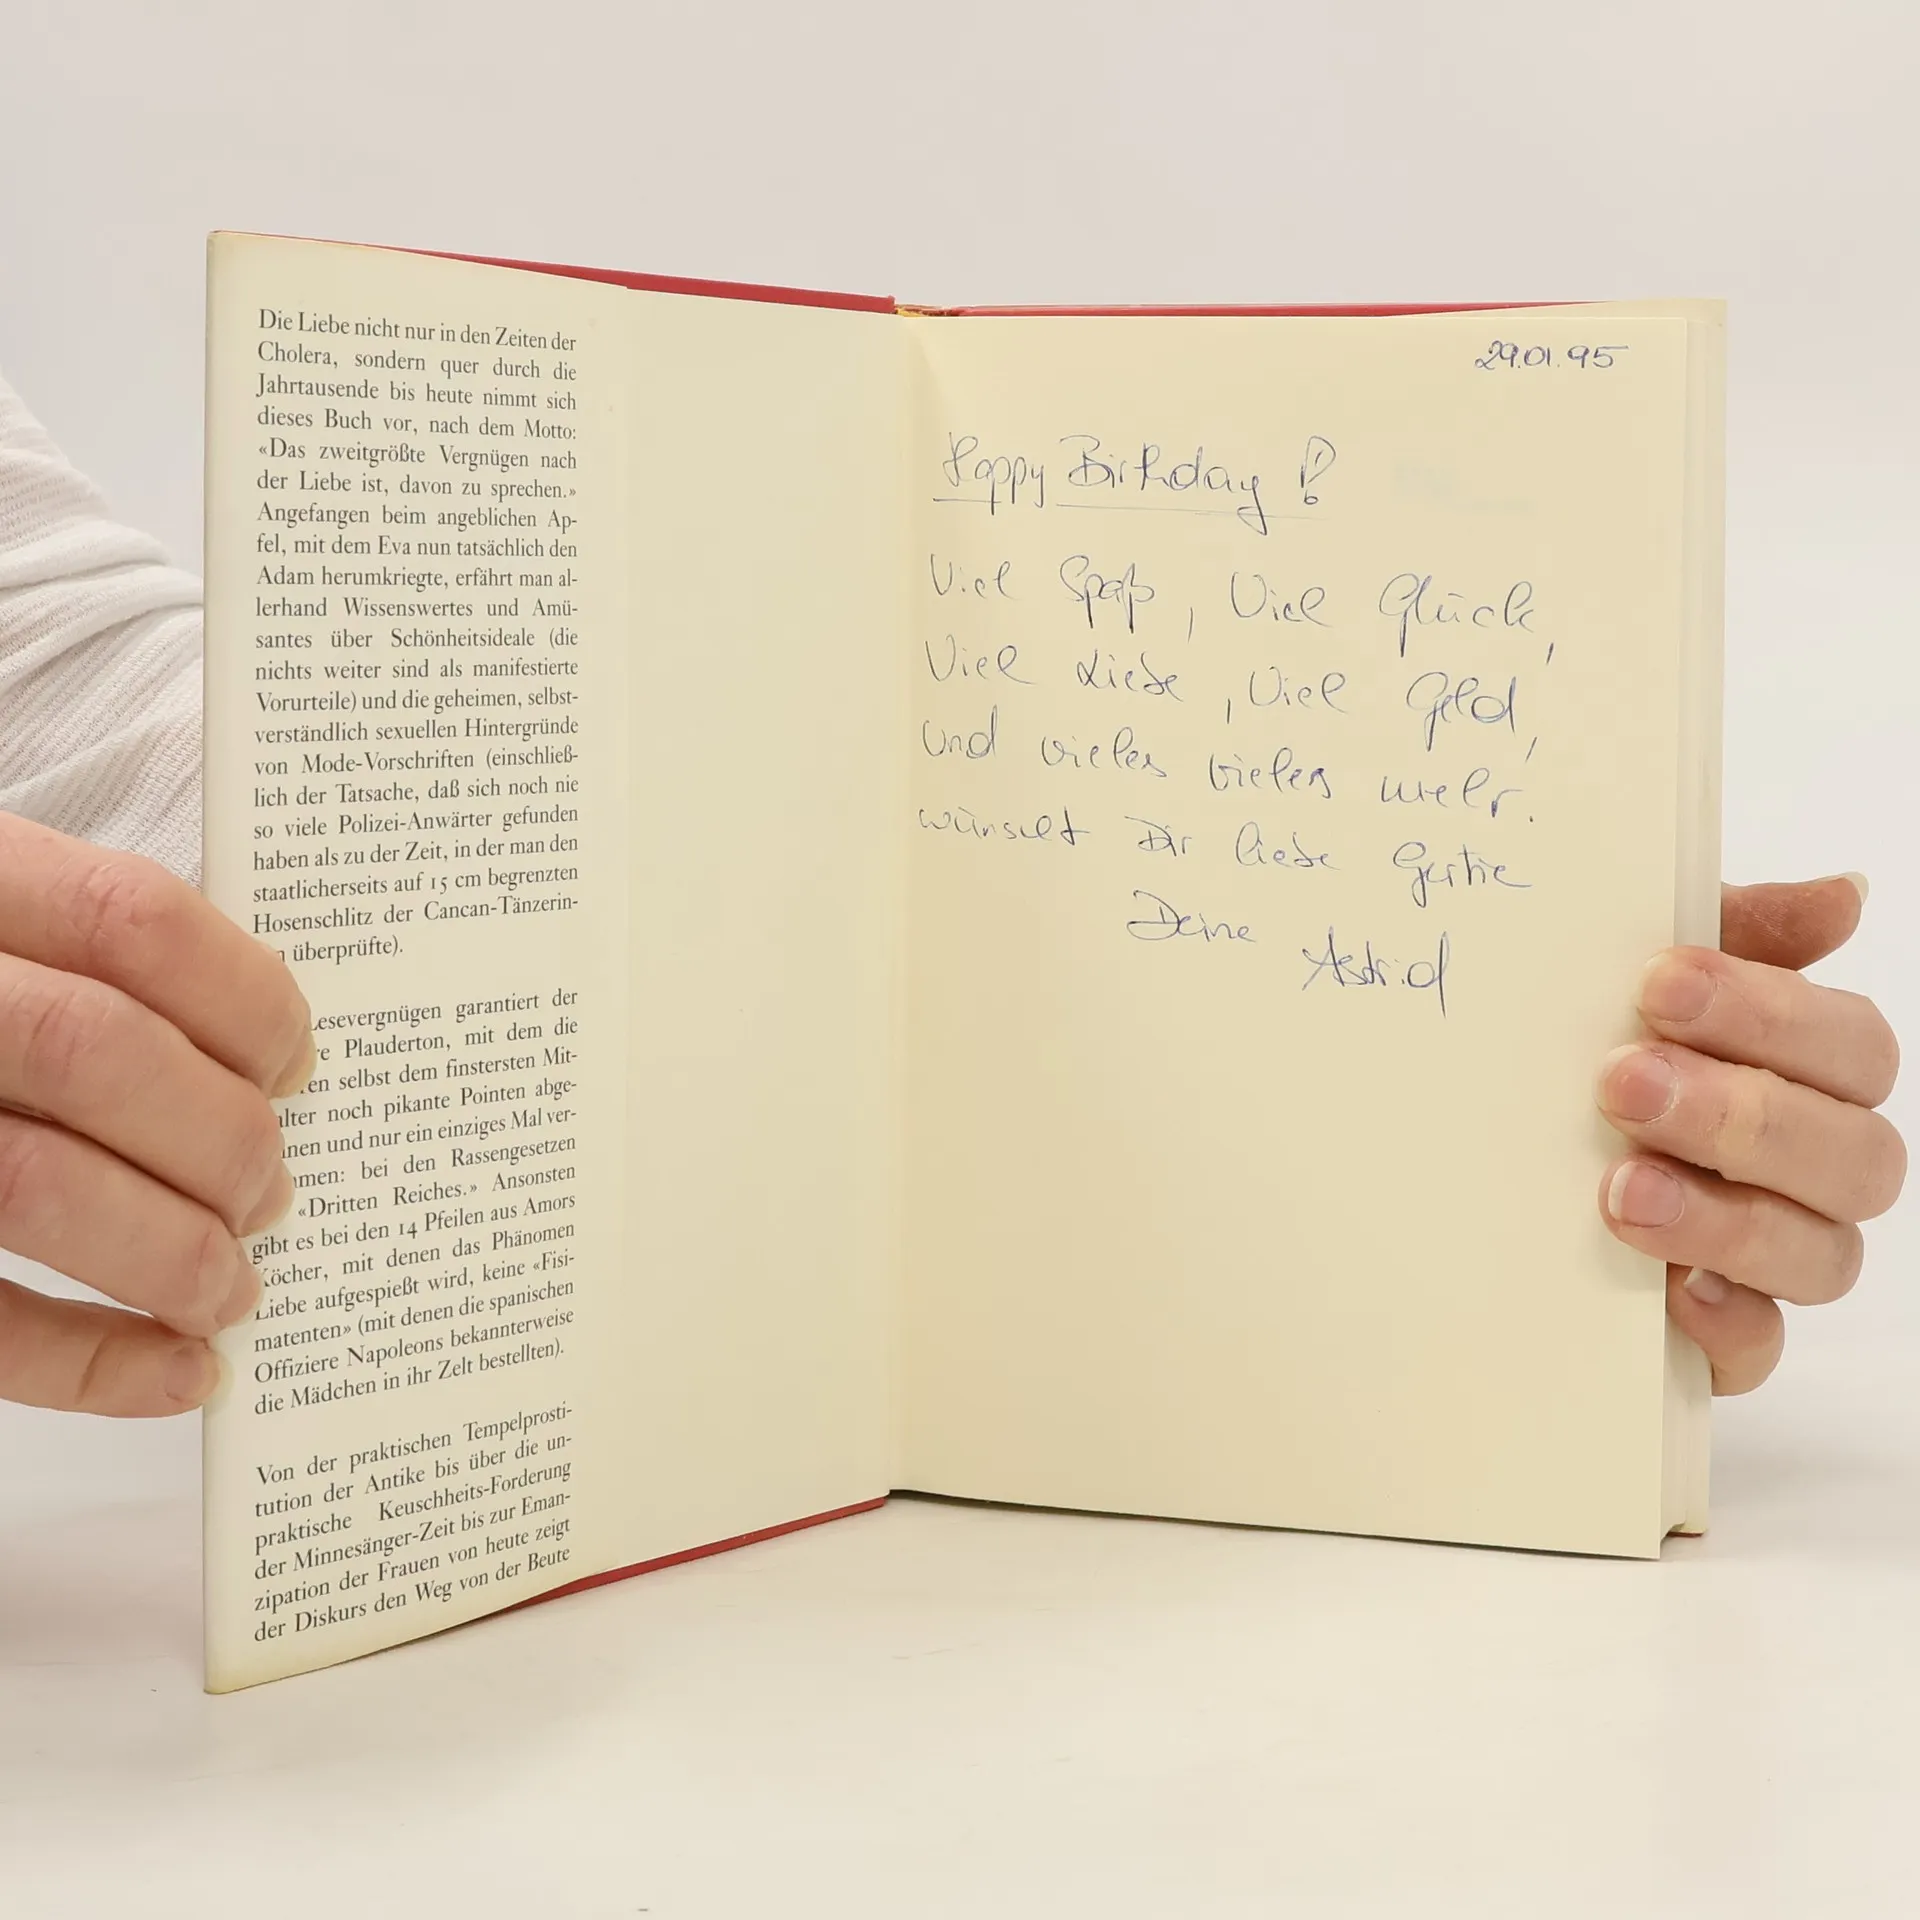 Die Liebe nicht nur in den Zeiten der
Cholera, sondern quer durch die
Jahrtausende bis heute nimmt sich
dieses Buch vor, nach dem Motto:
«Das zweitgrößte Vergnügen nach
der Liebe ist, davon zu sprechen.»
Angefangen beim angeblichen Ap-
fel, mit dem Eva nun tatsächlich den
Adam herumkriegte, erfährt man al-
lerhand Wissenswertes und Amü-
santes über Schönheitsideale (die
nichts weiter sind als manifestierte
Vorurteile) und die geheimen, selbst-
verständlich sexuellen Hintergründe
von Mode-Vorschriften (einschließ-
lich der Tatsache, daß sich noch nie
so viele Polizei-Anwärter gefunden
haben als zu der Zeit, in der man den
staatlicherseits auf 15 cm begrenzten
Hosenschlitz der Cancan-Tänzerin-
überprüfte).
Lesevergnügen garantiert der
Plauderton, mit dem die
selbst dem finstersten Mit-
alter noch pikante Pointen abge-
und nur ein einziges Mal ver-
bei den Rassengesetzen
«Dritten Reiches.» Ansonsten
gibt es bei den 14 Pfeilen aus Amors
Köcher, mit denen das Phänomen
Liebe aufgespießt wird, keine «Fisi-
matenten» (mit denen die spanischen
Offiziere Napoleons bekannterweise
die Mädchen in ihr Zelt bestellten).
Von der praktischen Tempelprosti-
tution der Antike bis über die un-
praktische Keuschheits-Forderung
der Minnesänger-Zeit bis zur Eman-
zipation der Frauen von heute zeigt
der Diskurs den Weg von der Beute
29.01.95
Happy Birthday!
Viel Spaß, Viel Glück,
Viel Liebe, Viel Geld,
und vieles vieles mehr.
wünscht Dir liebe Gertie
Deine Astrid